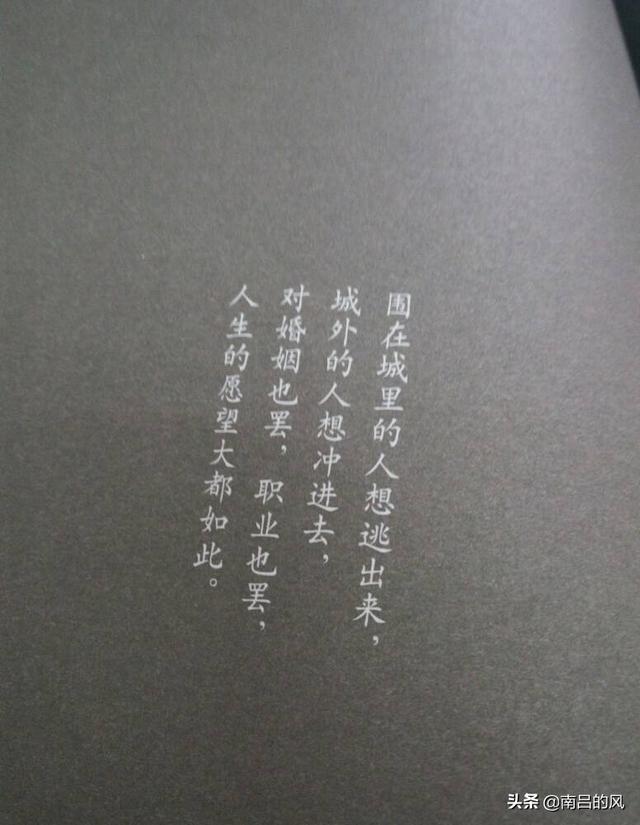 围在城里的人想逃出来，
城外的人想冲进去，
对婚姻也罢，职业也罢，
人生的愿望大都如此。
头条 @南吕的风